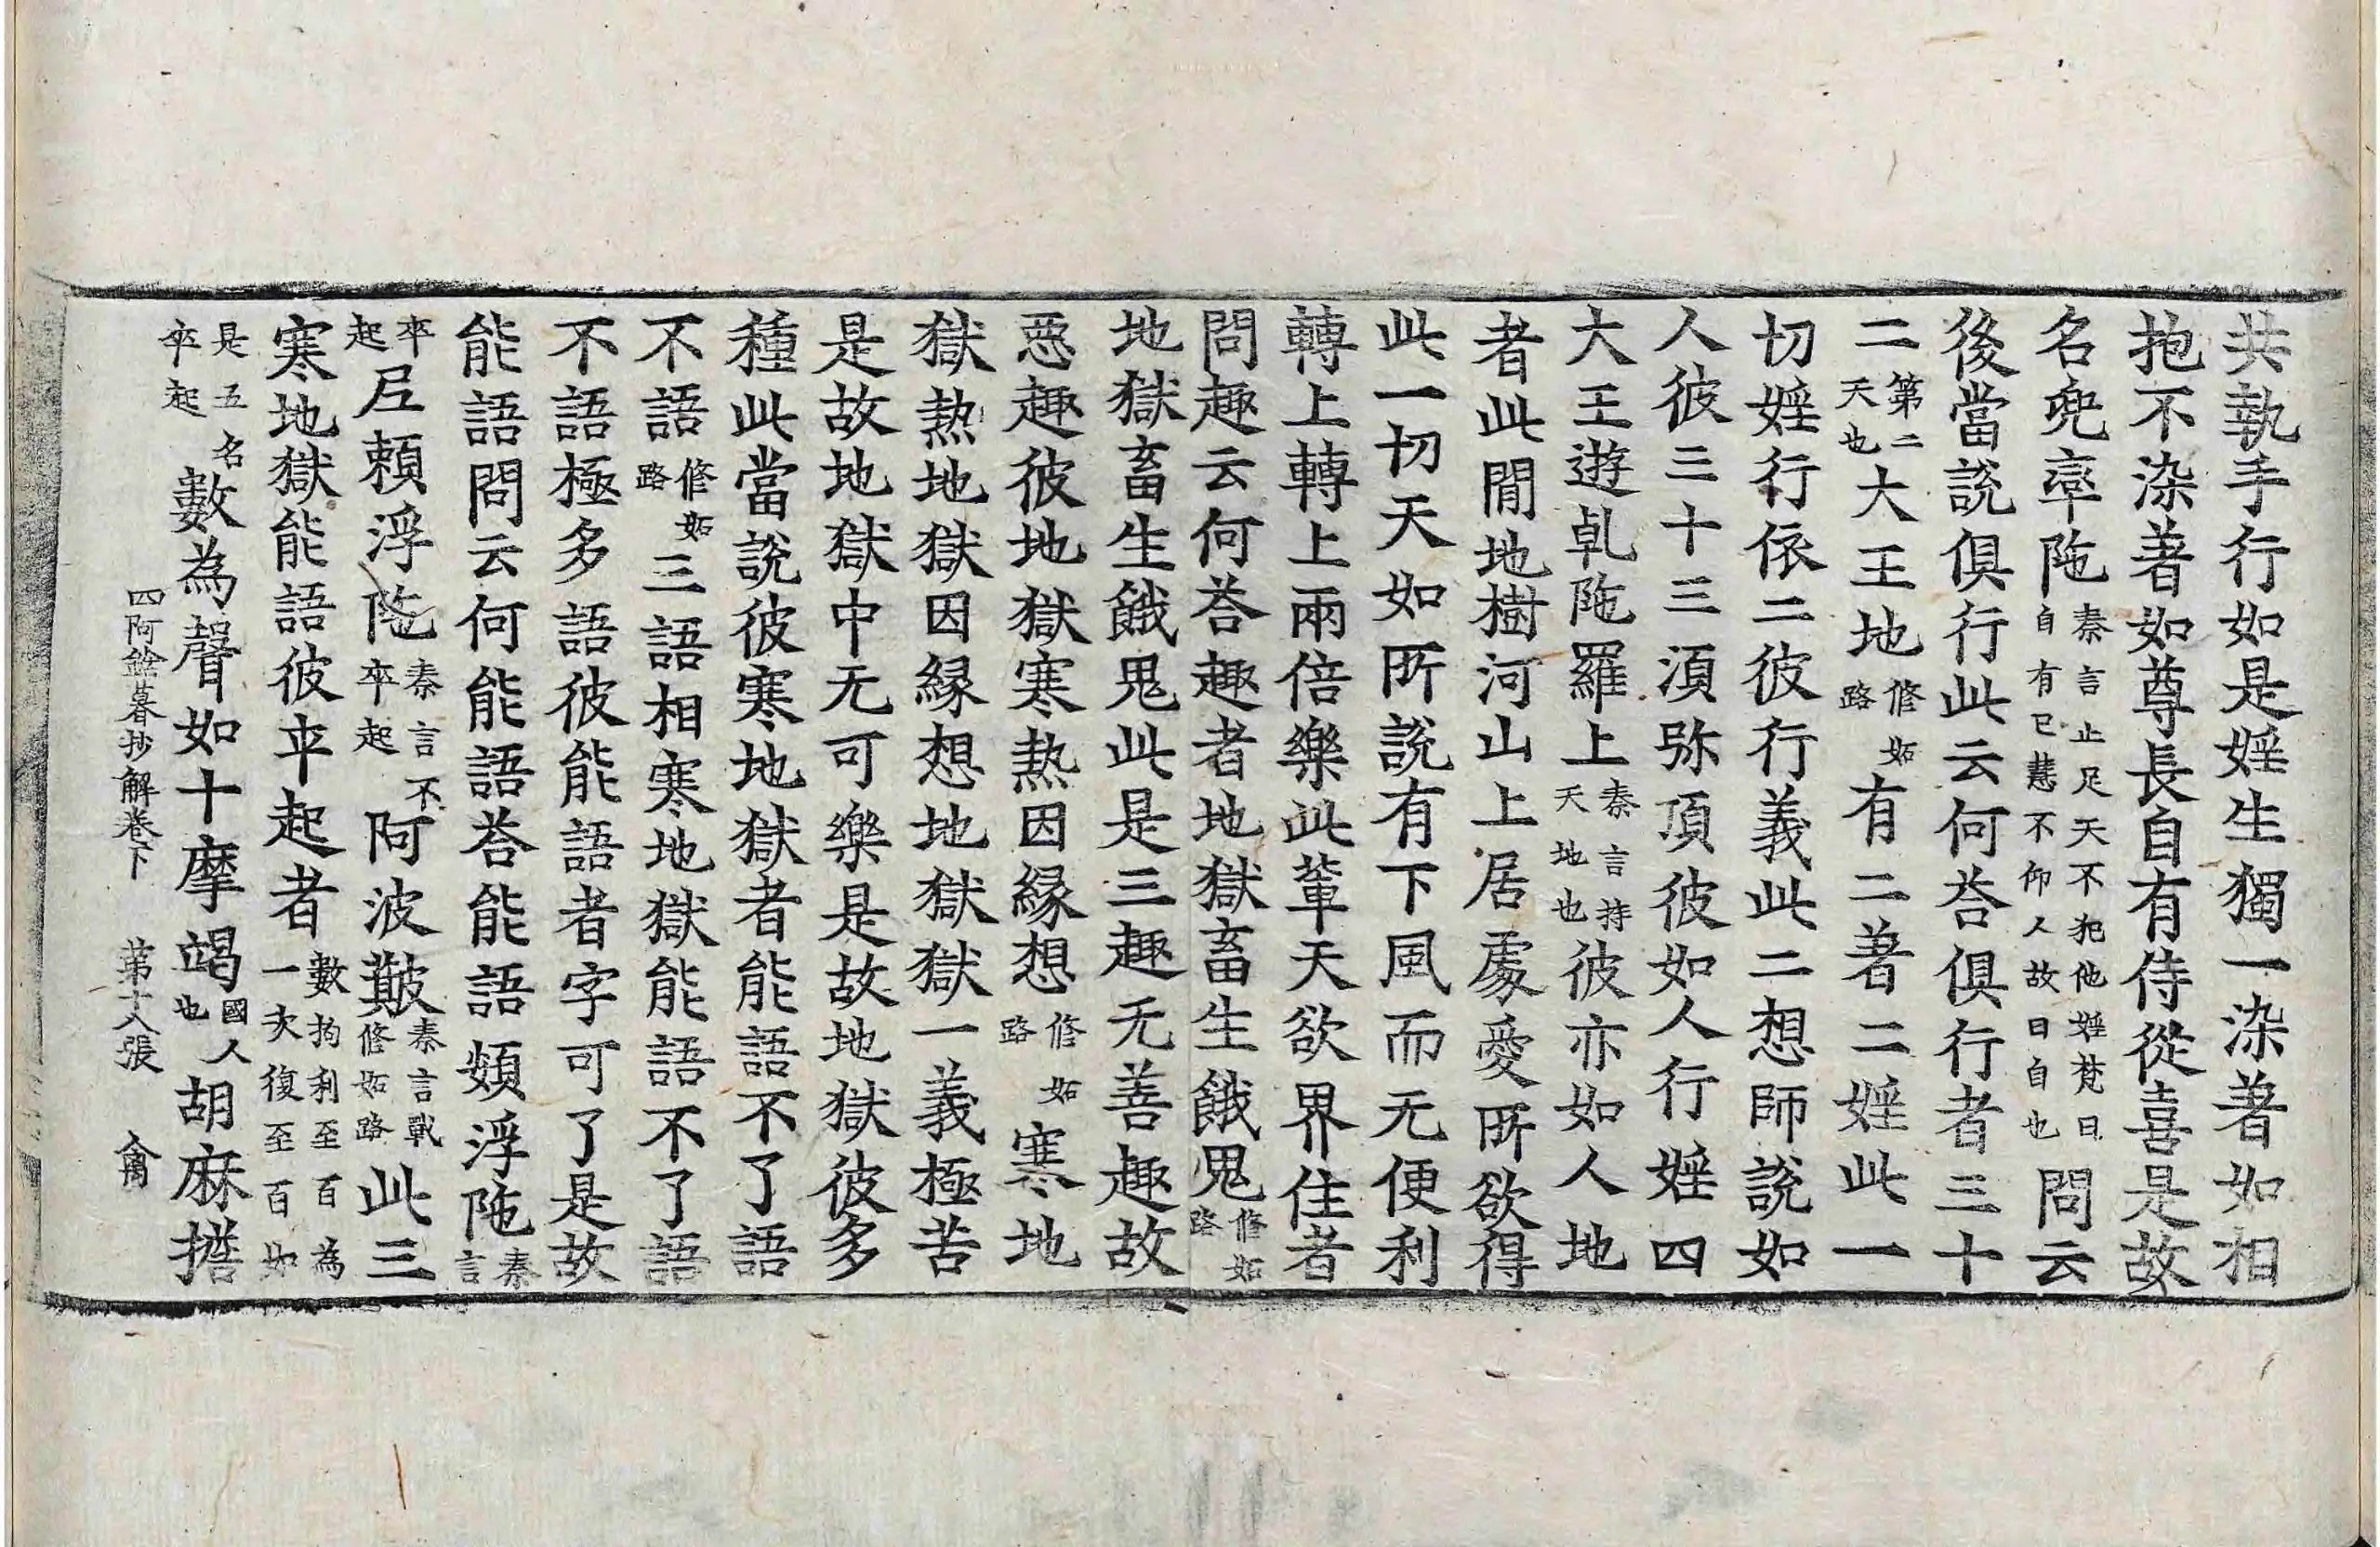 共執手行如是婬生獨一染著如相
抱不染著如尊長自有侍從喜是故
名兜率陁秦言止足天不犯他婬梵曰自有已慧不仰人故曰自也問云
後當說俱行此云何荅俱行者三十
二第二天也大王地修妬路有二著二婬此一
切婬行依二彼行義此二想師說如
人彼三十三湏弥頂彼如人行婬四
大王遊乹陁羅上秦言持天地也彼亦如人地
者此閒地樹河山上居處愛所欲得
此一切天如所說有下風而无便利
轉上轉上兩倍樂此輩天欲界住者
問趣云何荅趣者地獄畜生餓鬼修妬路
地獄畜生餓鬼此是三趣无善趣故
惡趣彼地獄寒熱因緣想修妬路寒地
獄熱地獄因緣想地獄獄一義極苦
是故地獄中无可樂是故地獄彼多
種此當說彼寒地獄者能語不了語
不語修妬路三語相寒地獄能語不了語
不語極多語彼能語者字可了是故
能語問云何能語荅能語頞浮陁秦言
卒起𡰱賴浮陁秦言不卒起阿波䶮秦言戰修妬路此三
寒地獄能語彼卒起者數拘利至百為一次復至百如
是五名卒起數為聲如十摩竭國人也胡麻㩜
四阿鋡暮抄解卷下 第十八張 禽